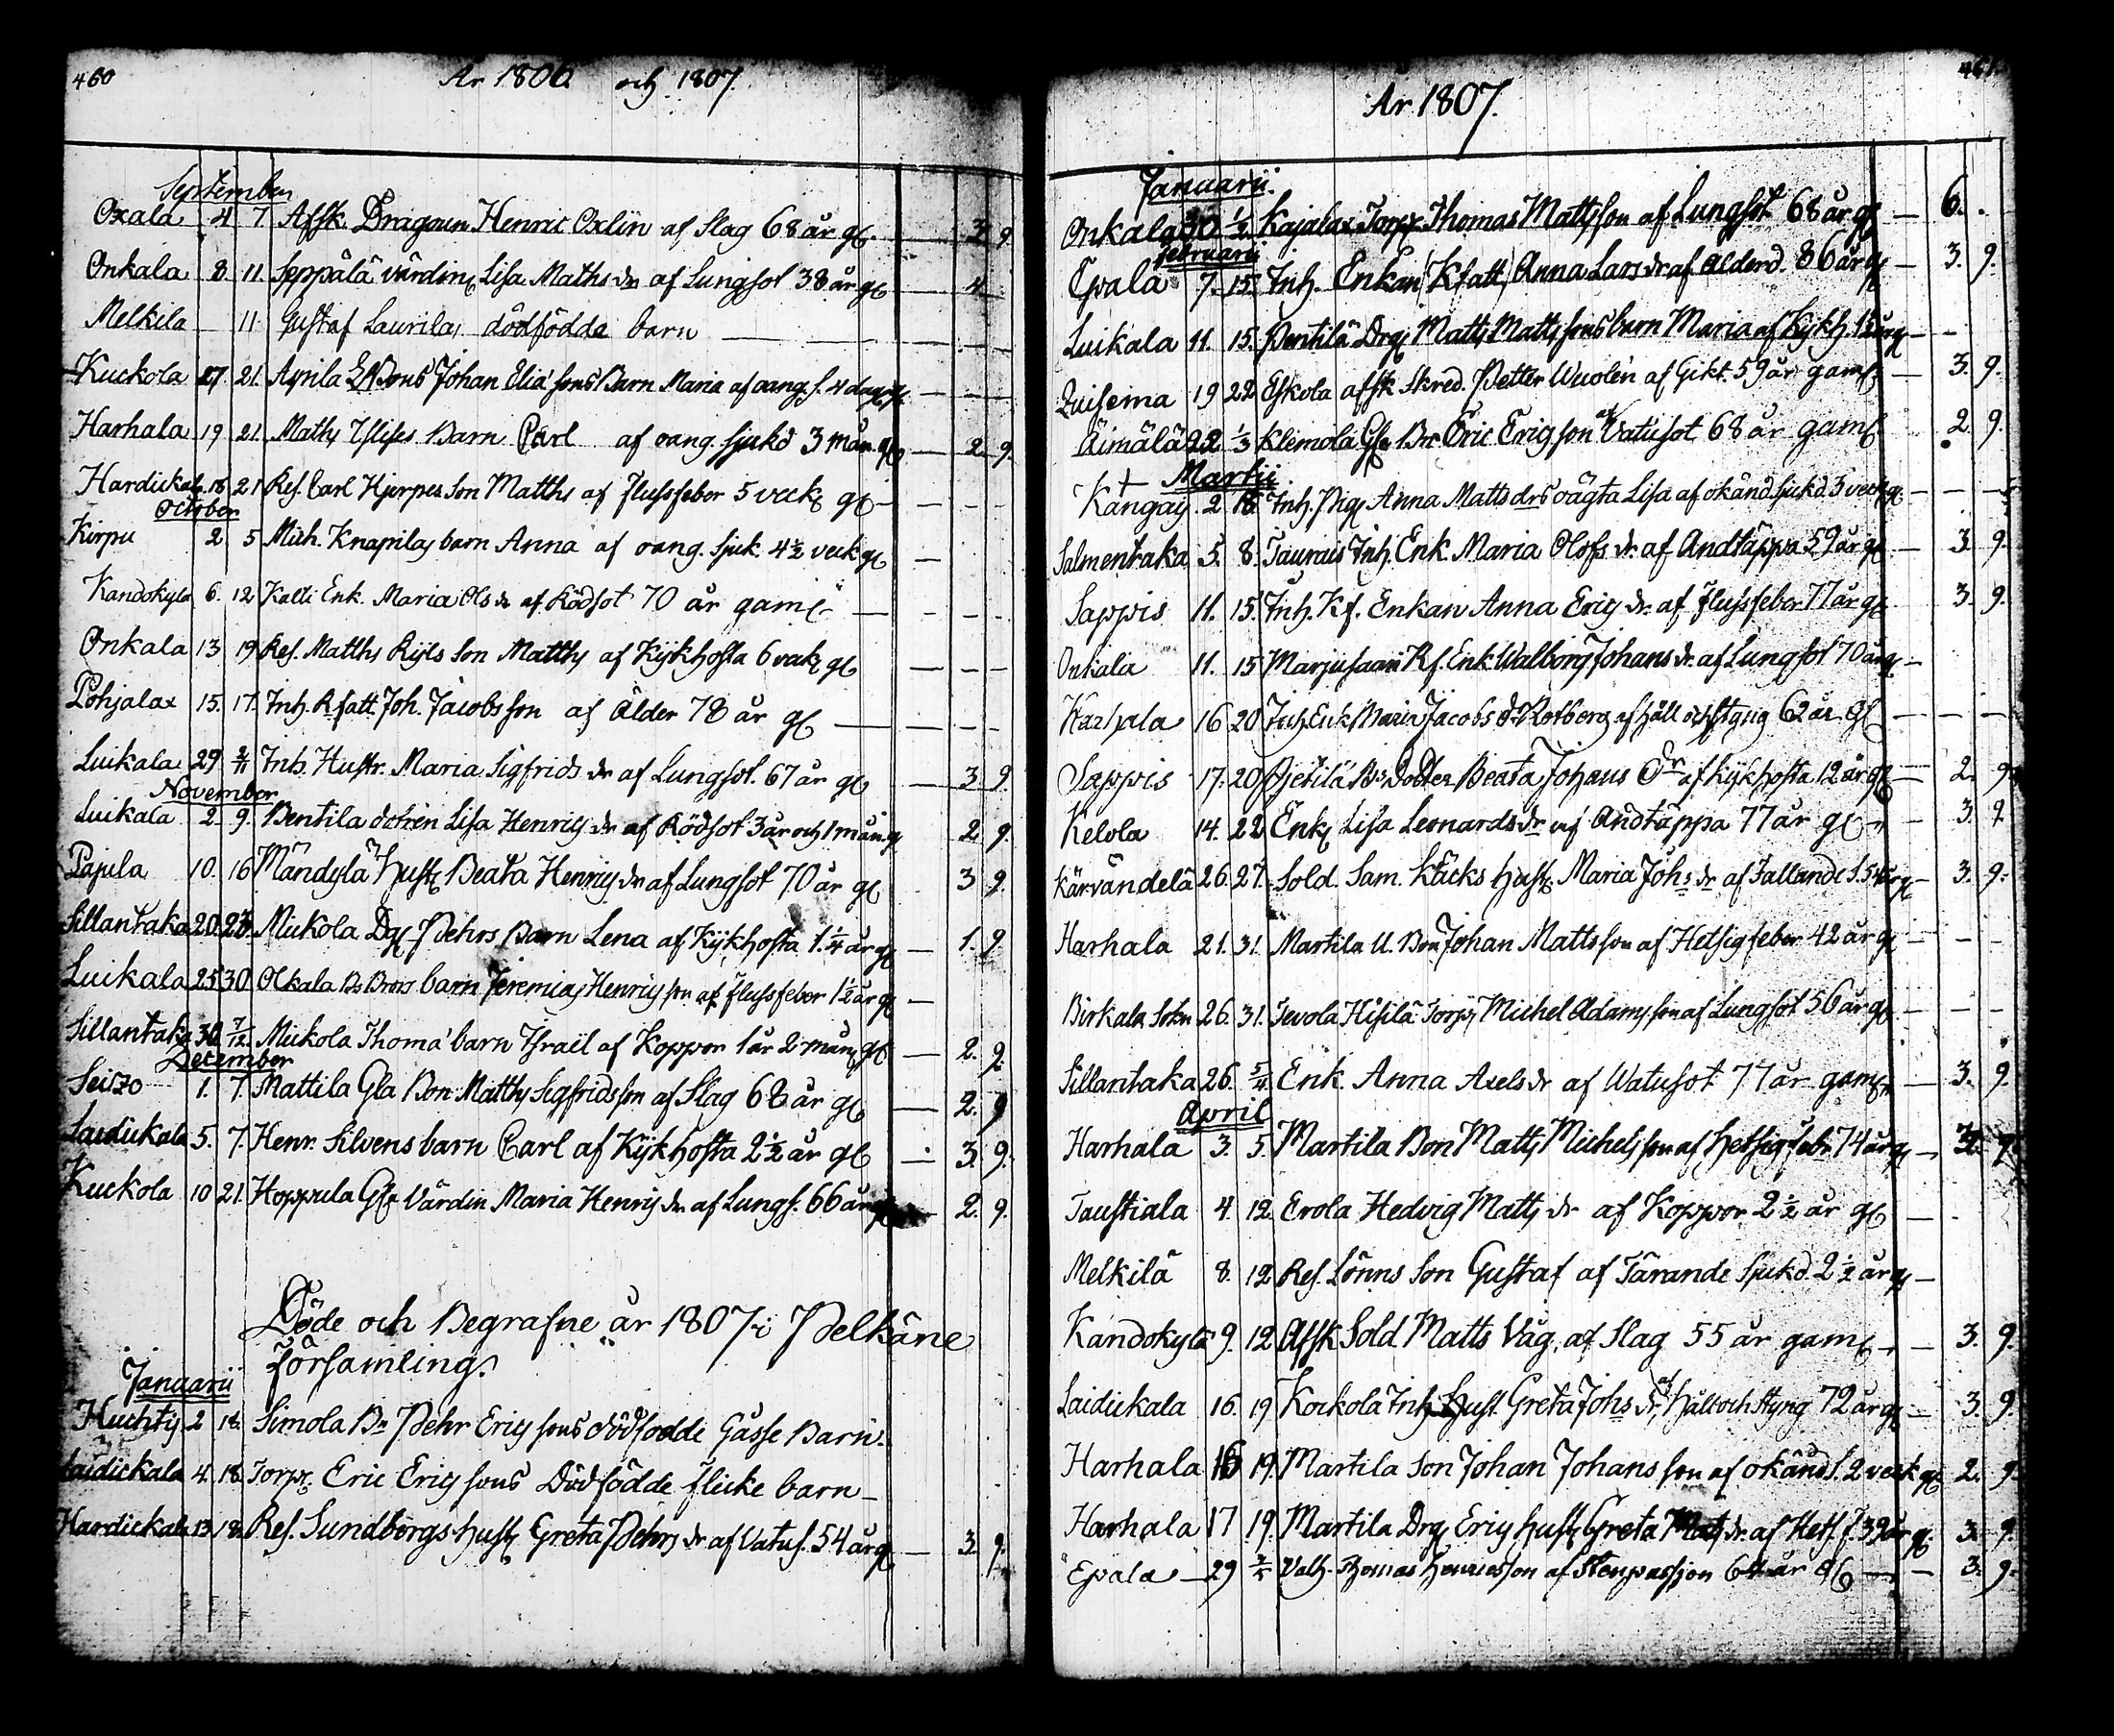 460
År 1806 och 1807.
September
Oxala 4 7 Afsk. Dragoun Henric Oxlin af Slag 68 år gl. — 3 9
Onkala 8. 11. Seppälä värdin Lisa Maths dr af Lungsot 38 år gl — 4
Melkila — 11 Gustaf Laurilas dödfödda barn — — —
Kuckola 17 21. Aprila Johan Elia sons Barn Maria af oang. s. 4 dag gl. — — —
Harhala 19 21. Maths Barn Carl af oang. sjukd 3 mån. gl — 2. 9.
Hardickala 18 21 Res. Carl Hjerpes Son Matths af flussfeber 5 veck gl — — — —
October
Kirpu 2 5 Mich. Knapilas barn Anna af oang. sjuk. 4½ veck gl —
Kandokyla 6. 12 Kalli Enk. Maria Ols dr af Rödsot 70 år gaml — — — —
Onkala 13 19 Res. Matths Rijls Son Matths af Kijkhosta 6 veck gl — — —
Pohjalax 15. 17. Inh. Rfatt. Joh. Jacobsson af Ålder 78 år gl — — — —
Luikala 29 2/11 Inh. Hustr. Maria Sigfrids dr af Lungsot. 67 år gl — 3 9
November
Luikala 2. 9. Bentila dotren Lisa Henrics dr af Rödsot 3 år och 1 mån. g 2. 9
Pajula 10. 16 Mändylä Hust Beata Henrics dr af Lungsot 70 år gl 3 9
Sillantaka 20. 23. Mickola Dgl Pehrs Barn Lena af Kijkhosta 1.¼ år gl — 1. 9
Luikala 25 30. Ockala Bs Brors barn Jeremias Henrics son af flussfeber 1½ år gl —
Sillantaka 30. 7/12. Mickola Thoma barn Israil af Koppor 1 år 2 mån gl — 2. 9.
December
Seizo 1. 7. Mattila Gla Bon Matths Sigfridsson af Slag 68 år gl — 2. 9
Laidickala 5. 7. Henr. Silvens barn Carl af Kijkhosta 2½ år gl — 3. 9.
Kuckola 10 21. Hoppula Gla Värdin Maria Henrics dr af Lungs. 66 år — 2. 9.
Döde och Begrafne år 1807 i Pelkäne
Församling.
Januarii
Huchtis 2 18. Simola Bn Pehr Erics sons dödfödde Gåsse Barn.
Laidickala 4. 18. Torp. Eric Erics sons Dödfödde flicke barn —
Hardickala 13. 18. Res. Sundbergs hust Greta Pehrs dr af Vatus. 54 år gl — 3. 9.
461.
År 1807.
Januarii.
Onkala 30 ½ Kajalax Torp. Thomas Mattsson af Lungsot 68 år gl — 6. .
Februarii
Epala 7. 15. Inh. Enkan Kfatt Anna Lars dr af Alderd. 86 år gl — 3. 9.
Luikala 11. 15. Pentilä Drg Matts Mattssons barn Maria af Kijkh. 1½ år gl — -
19 22 Eskola afsk Skred. Petter Wuolén af Gikt. 59 år gaml. — 3. 9.
Äimälä 22 1/3 Klemola Gla Bn Eric Ericsson af Vatusot 68 år gaml. 2. 9.
Martii
+
Kangas 2 15 Inh. Pig Anna Matts drs oägta Lisa af okänd sjukd 3 veck gl. — — —
Salmentaka 5. 8. Taurais Inh. Enk. Maria Olofs dr af Andtäppa 59 år gl — 3. 9.
Sappis 11. 15. Inh. Kf. Enkan Anna Erics dr af flussfeber 77 år gl 3. 9.
Onkala 11. 15 Marjusaari Rf. Enk. Walborg Johans dr af Lungsot 70 år gl —
16 20 Inh. Enk Maria Jacobs dr Rotberg af håll och styng 62 år. gl — — —
Sappis 17. 20 Pjetilä Bs Dotter Beata Johans Dr af Kijkhosta 12 år gl — 2. 9.
Kelola 14. 22 Enk Lisa Leonards dr af Andtäppa 77 år gl — 3. 9.
Kärvändelä 26. 27. Sold. Sam. Käcks hust. Maria Johs dr af Fallande S. 54 år gl — 3. 9.
Harhala 21. 31. Martila U. Bon Johan Mattsson af Hetsigfeber 42 år gl — — —
Birkala Sokn 26. 31. Tevola Hisilä Torp Michel Adamsson af Lungsot 56 år gl — — —
Sillantaka 26. 5/4 Enk. Anna Axels dr af Watusot 77 år gaml — 3. 9.
April
Harhala 3. 5. Martila Bon Matts Michelsson af hetsigfebr 74 år gl — 3. 9.
Taustiala 4. 12 Erola Hedvig Matts dr af Koppor 2½ år gl — .
Melkilä 8. 12 Res. Lönns Son Gustaf af Tärande sjukd. 2½ år gl —
Kandokylä 9. 12 Afsk Sold Matts Våg, af Slag 55 år gaml — 3. 9.
Laidickala 16. 19 Kockola Inh Hust Greta Johs dr, af Håll och Styng 72 år gl — 3. 9.
Harhala 16 19. Martila Son Johan Johansson af okänd s. 2 veck gl 2. 9
Harhala 17 19. Martila Drg Erics hust Greta Matts dr. af Hets. f. 39 år gl. 3. 9.
Epala — 29 Thomas Henricsson af Stenpassion 64 år gl — — 3. 9.